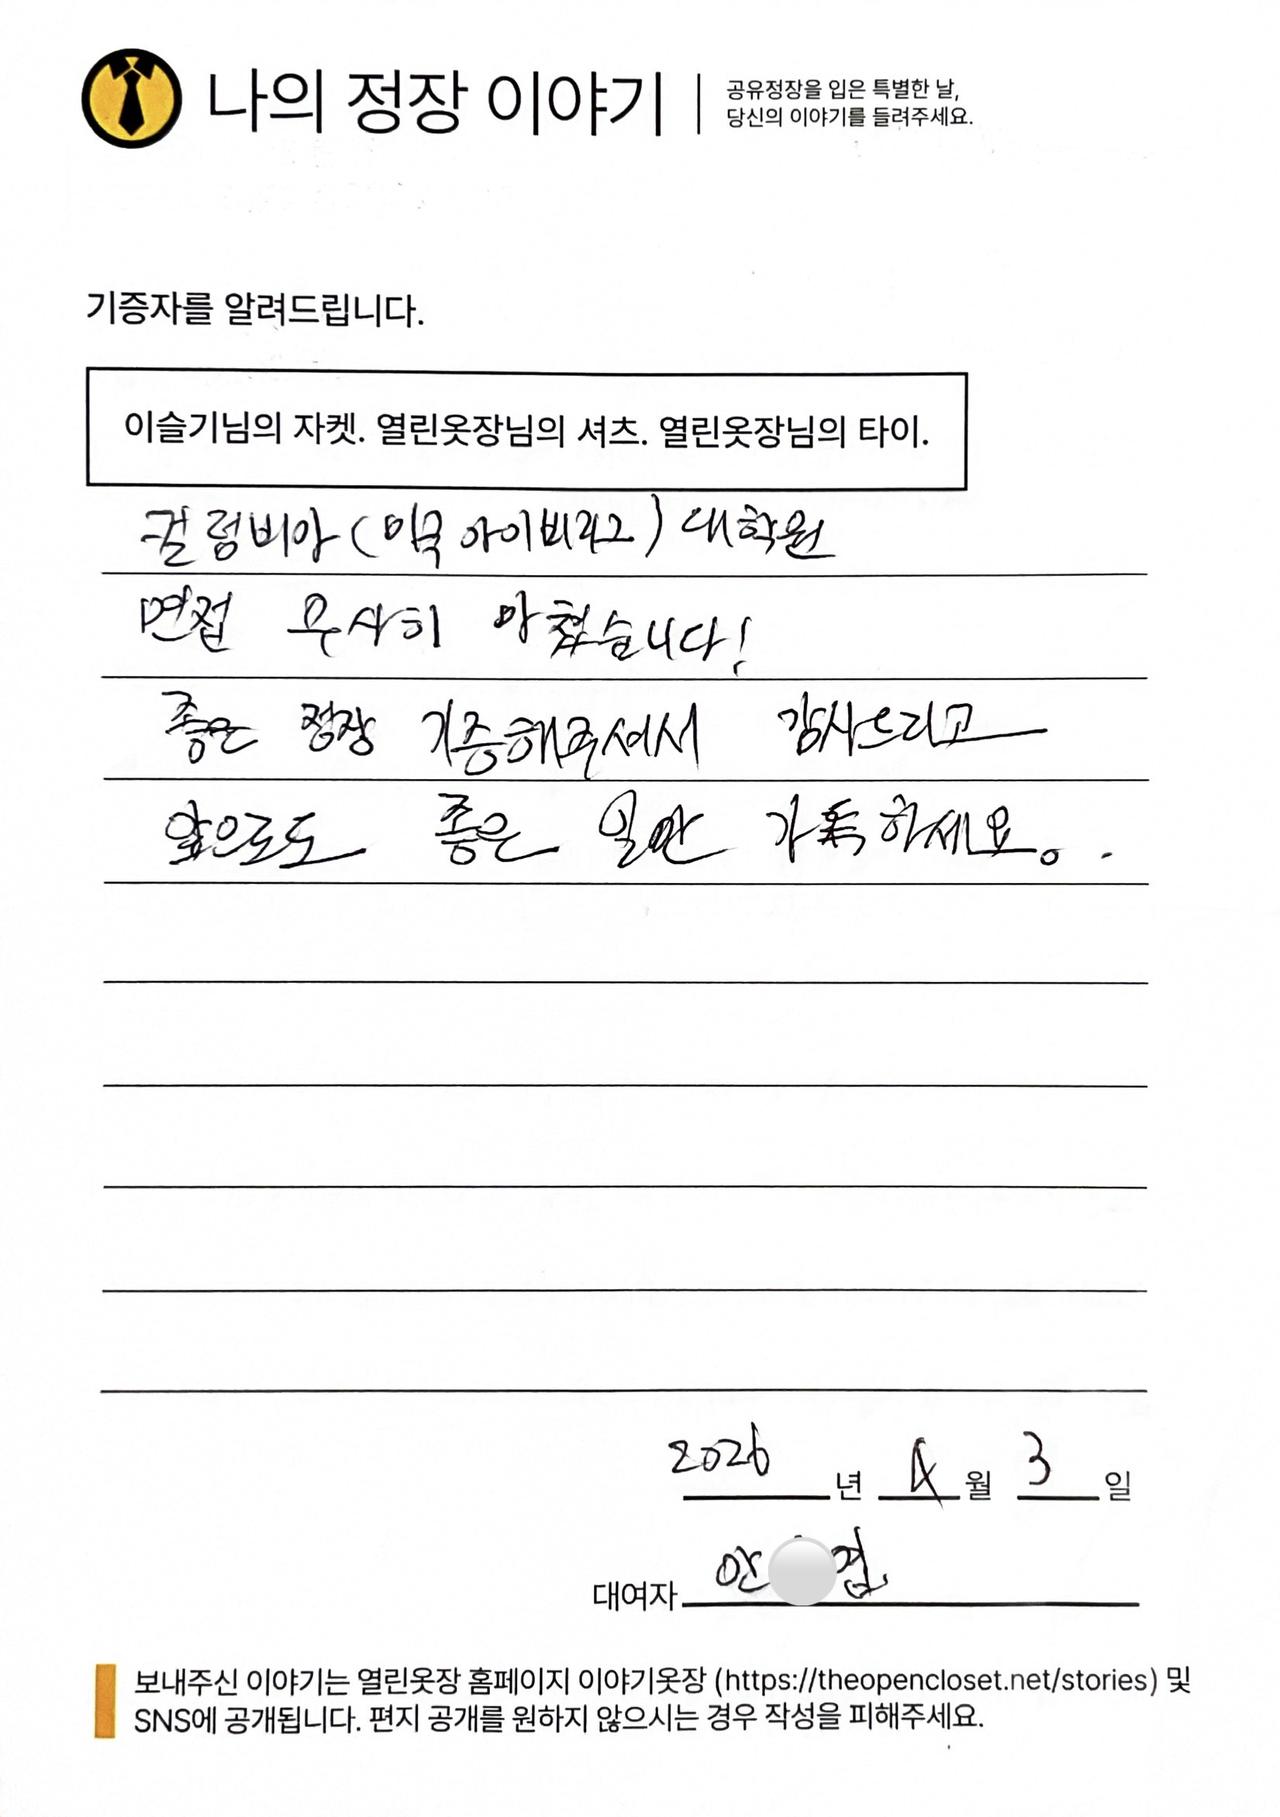 나의 정장 이야기
공유정장을 입은 특별한 날,
당신의 이야기를 들려주세요.
기증자를 알려드립니다.
이슬기님의 자켓. 열린옷장님의 셔츠. 열린옷장님의 타이.
컬럼비아 (미국 아이비리그) 대학원
면접 무사히 마쳤습니다!
좋은 정장 기증해주셔서 감사드리고
앞으로도 좋은 일만 가득하세요.
2026년 4월 3일
대여자 안 엽
보내주신 이야기는 열린옷장 홈페이지 이야기옷장 (https://theopencloset.net/stories) 및
SNS에 공개됩니다. 편지 공개를 원하지 않으시는 경우 작성을 피해주세요.